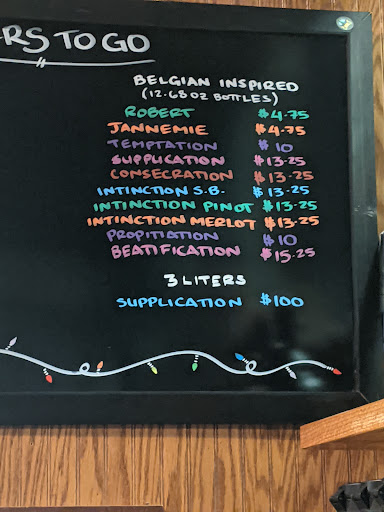 RS TO GO
BELGIAN INSPIRED
(12.68 OZ BOTTLES)
ROBERT $4.75
JANNEMIE $4.75
TEMPTATION $10
SUPPLICATION $13.25
CONSECRATION $13.25
INTINCTION S.B. $13.25
INTINCTION PINOT $13.25
INTINCTION MERLOT $13.25
PROPITIATION $10
BEATIFICATION $15.25
3 LITERS
SUPPLICATION $100